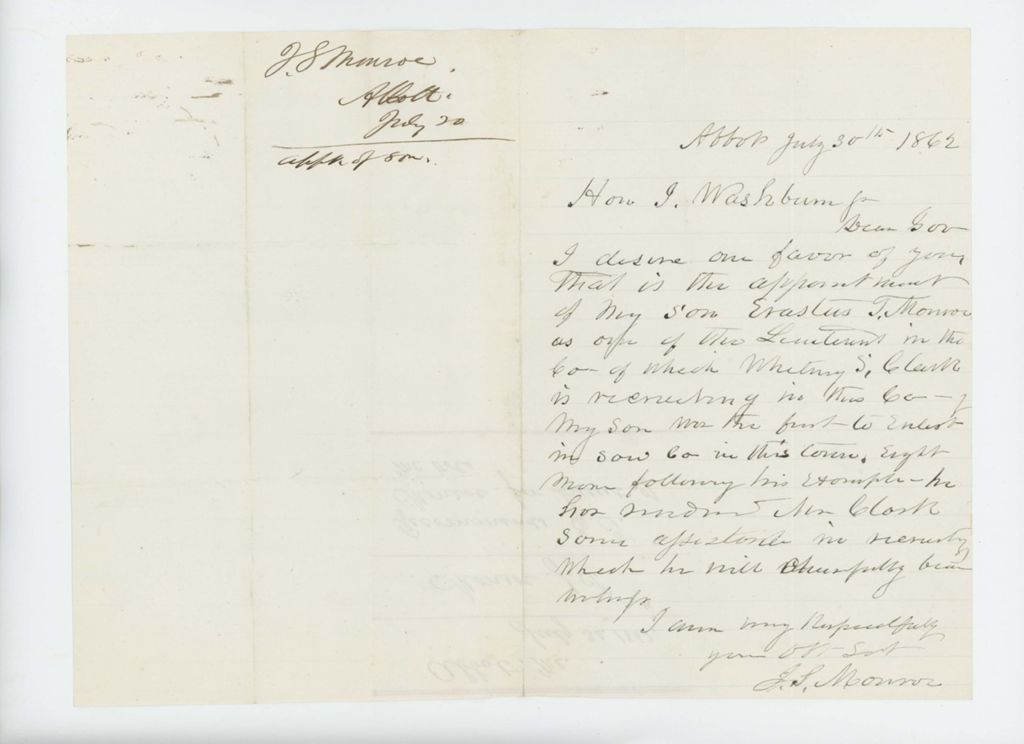 J. S Monroe.
Abbott.
July 20
appt of son.
Abbot July 30th 1862
Hon I. Washburn Jr
Dear Gov
I desire one favor of you,
that is the appointment
of My Son Erastus T. Monroe
as one of the Lieutenant in the
Co- of which Whitney S. Clark
is recruiting in this Co-y
My Son was the first to Enlist
in said Co in this town. Eight
More following his Example - he
has rendered Mr Clark
Some assistance in recruiting
Which he will Chearfully bear
witness
I am very Respectfully
your Obt Svt
J. S. Monroe